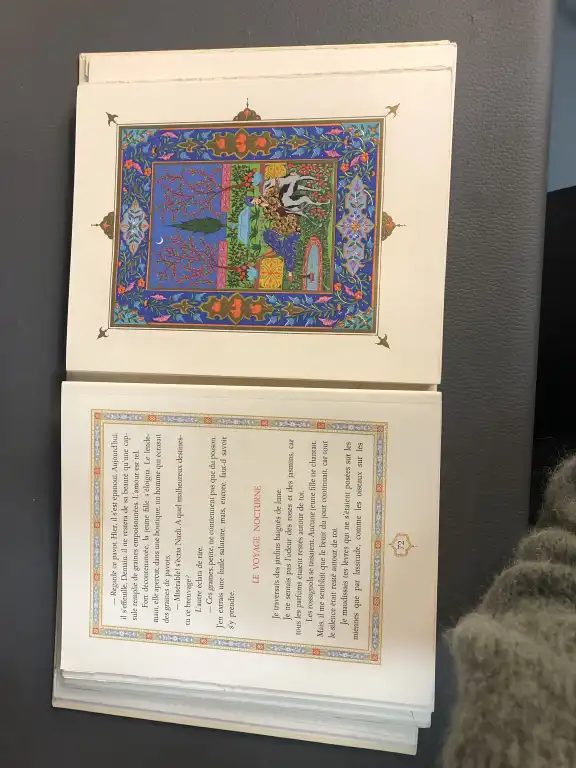 — Regarde ce pavot. Hier, il s'est épanoui. Aujourd'hui,
il s'effeuille. Demain, il ne restera de sa beauté qu'une cap-
sule remplie de graines empoisonnées. L'amour est tel.
Fort décontenancée, la jeune fille s'éloigna. Le lende-
main, elle aperçut, dans une boutique, un homme qui écrasait
des graines de pavots.
— Misérable! s'écria Nazli. A quel malheureux destines-
tu ce breuvage?
L'autre éclata de rire.
— Ces graines, petite, ne contiennent pas que du poison.
J'en extrais une huile salutaire, mais, encore, faut-il savoir
s'y prendre.
LE VOYAGE NOCTURNE
Je traversais des jardins baignés de lune.
Je ne sentais pas l'odeur des roses et des jasmins, car
tous les parfums étaient restés autour de toi.
Les rossignols se taisaient. Aucune jeune fille ne chantait.
Mais il me semblait que le bruit du jour continuait, car tout
le silence était resté autour de toi.
Je maudissais tes lèvres qui ne s'étaient posées sur les
miennes que par lassitude, comme les oiseaux sur les
72